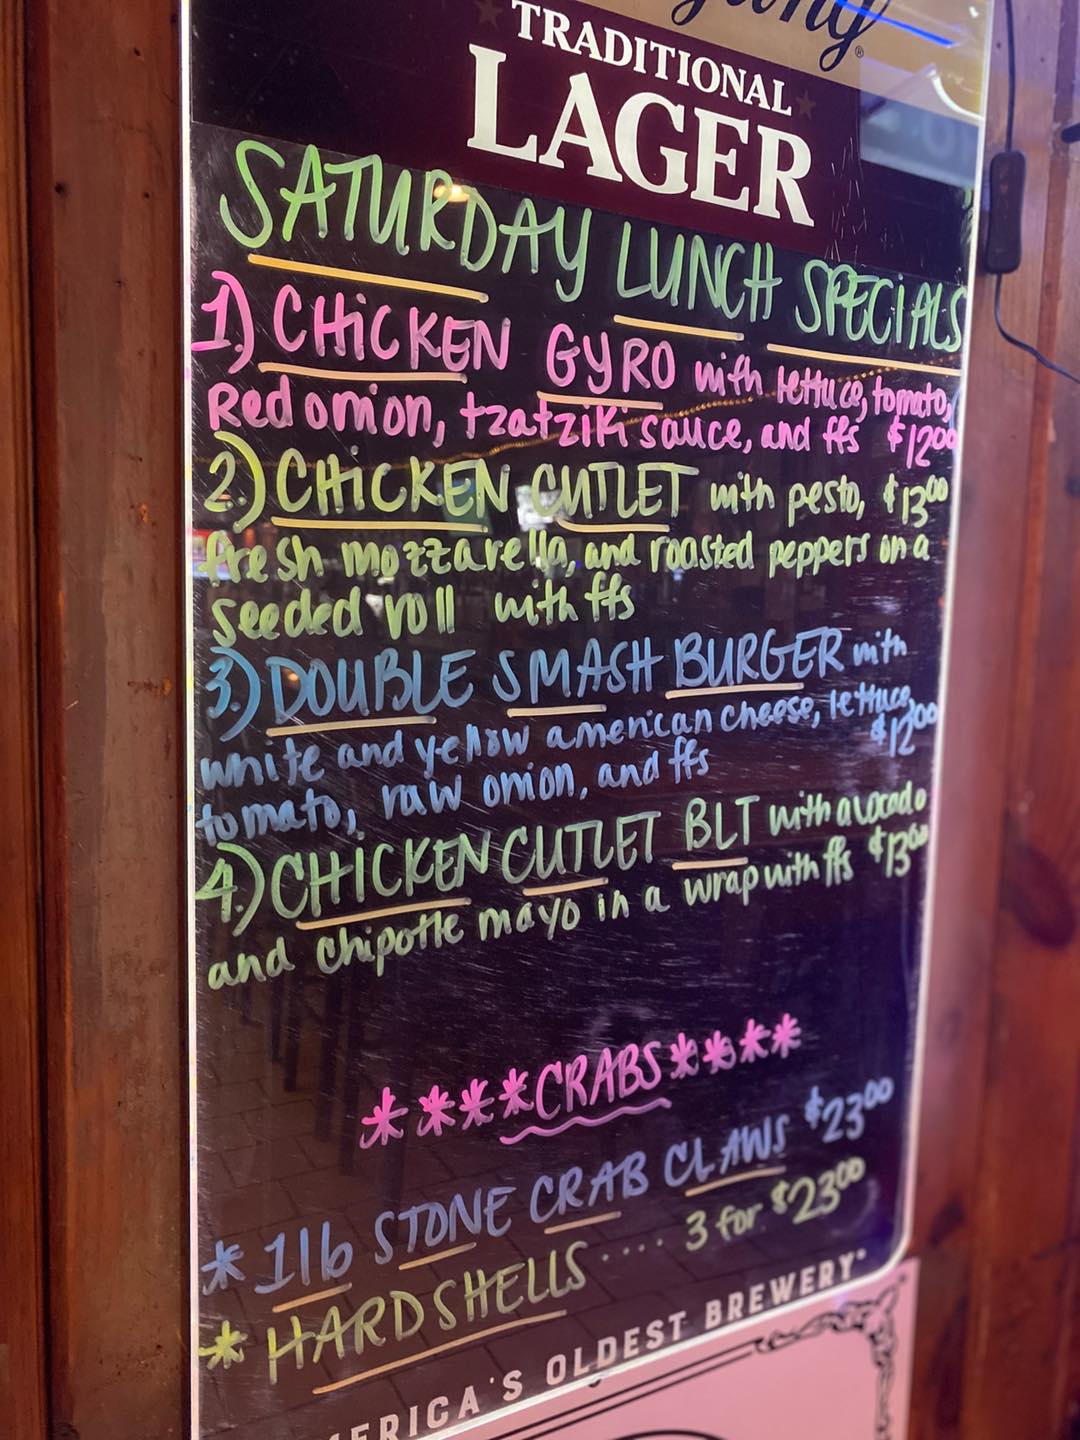 TRADITIONAL
LAGER
SATURDAY LUNCH SPECIALS
1) CHICKEN GYRO with lettuce, tomato,
Red onion, tzatziki sauce, and ffs $12.00
2.) CHICKEN CUTLET with pesto, $13.00
fresh mozzarella, and roasted peppers on a
seeded roll with ffs
3.) DOUBLE SMASH BURGER with
white and yellow american cheese, lettuce, $12.00
tomato, raw onion, and ffs
4.) CHICKEN CUTLET BLT with avocado
and chipotle mayo in a wrap with ffs $13.00
****CRABS****
* 1lb STONE CRAB CLAWS $23.00
* HARDSHELLS .... 3 for $23.00
AMERICA'S OLDEST BREWERY®